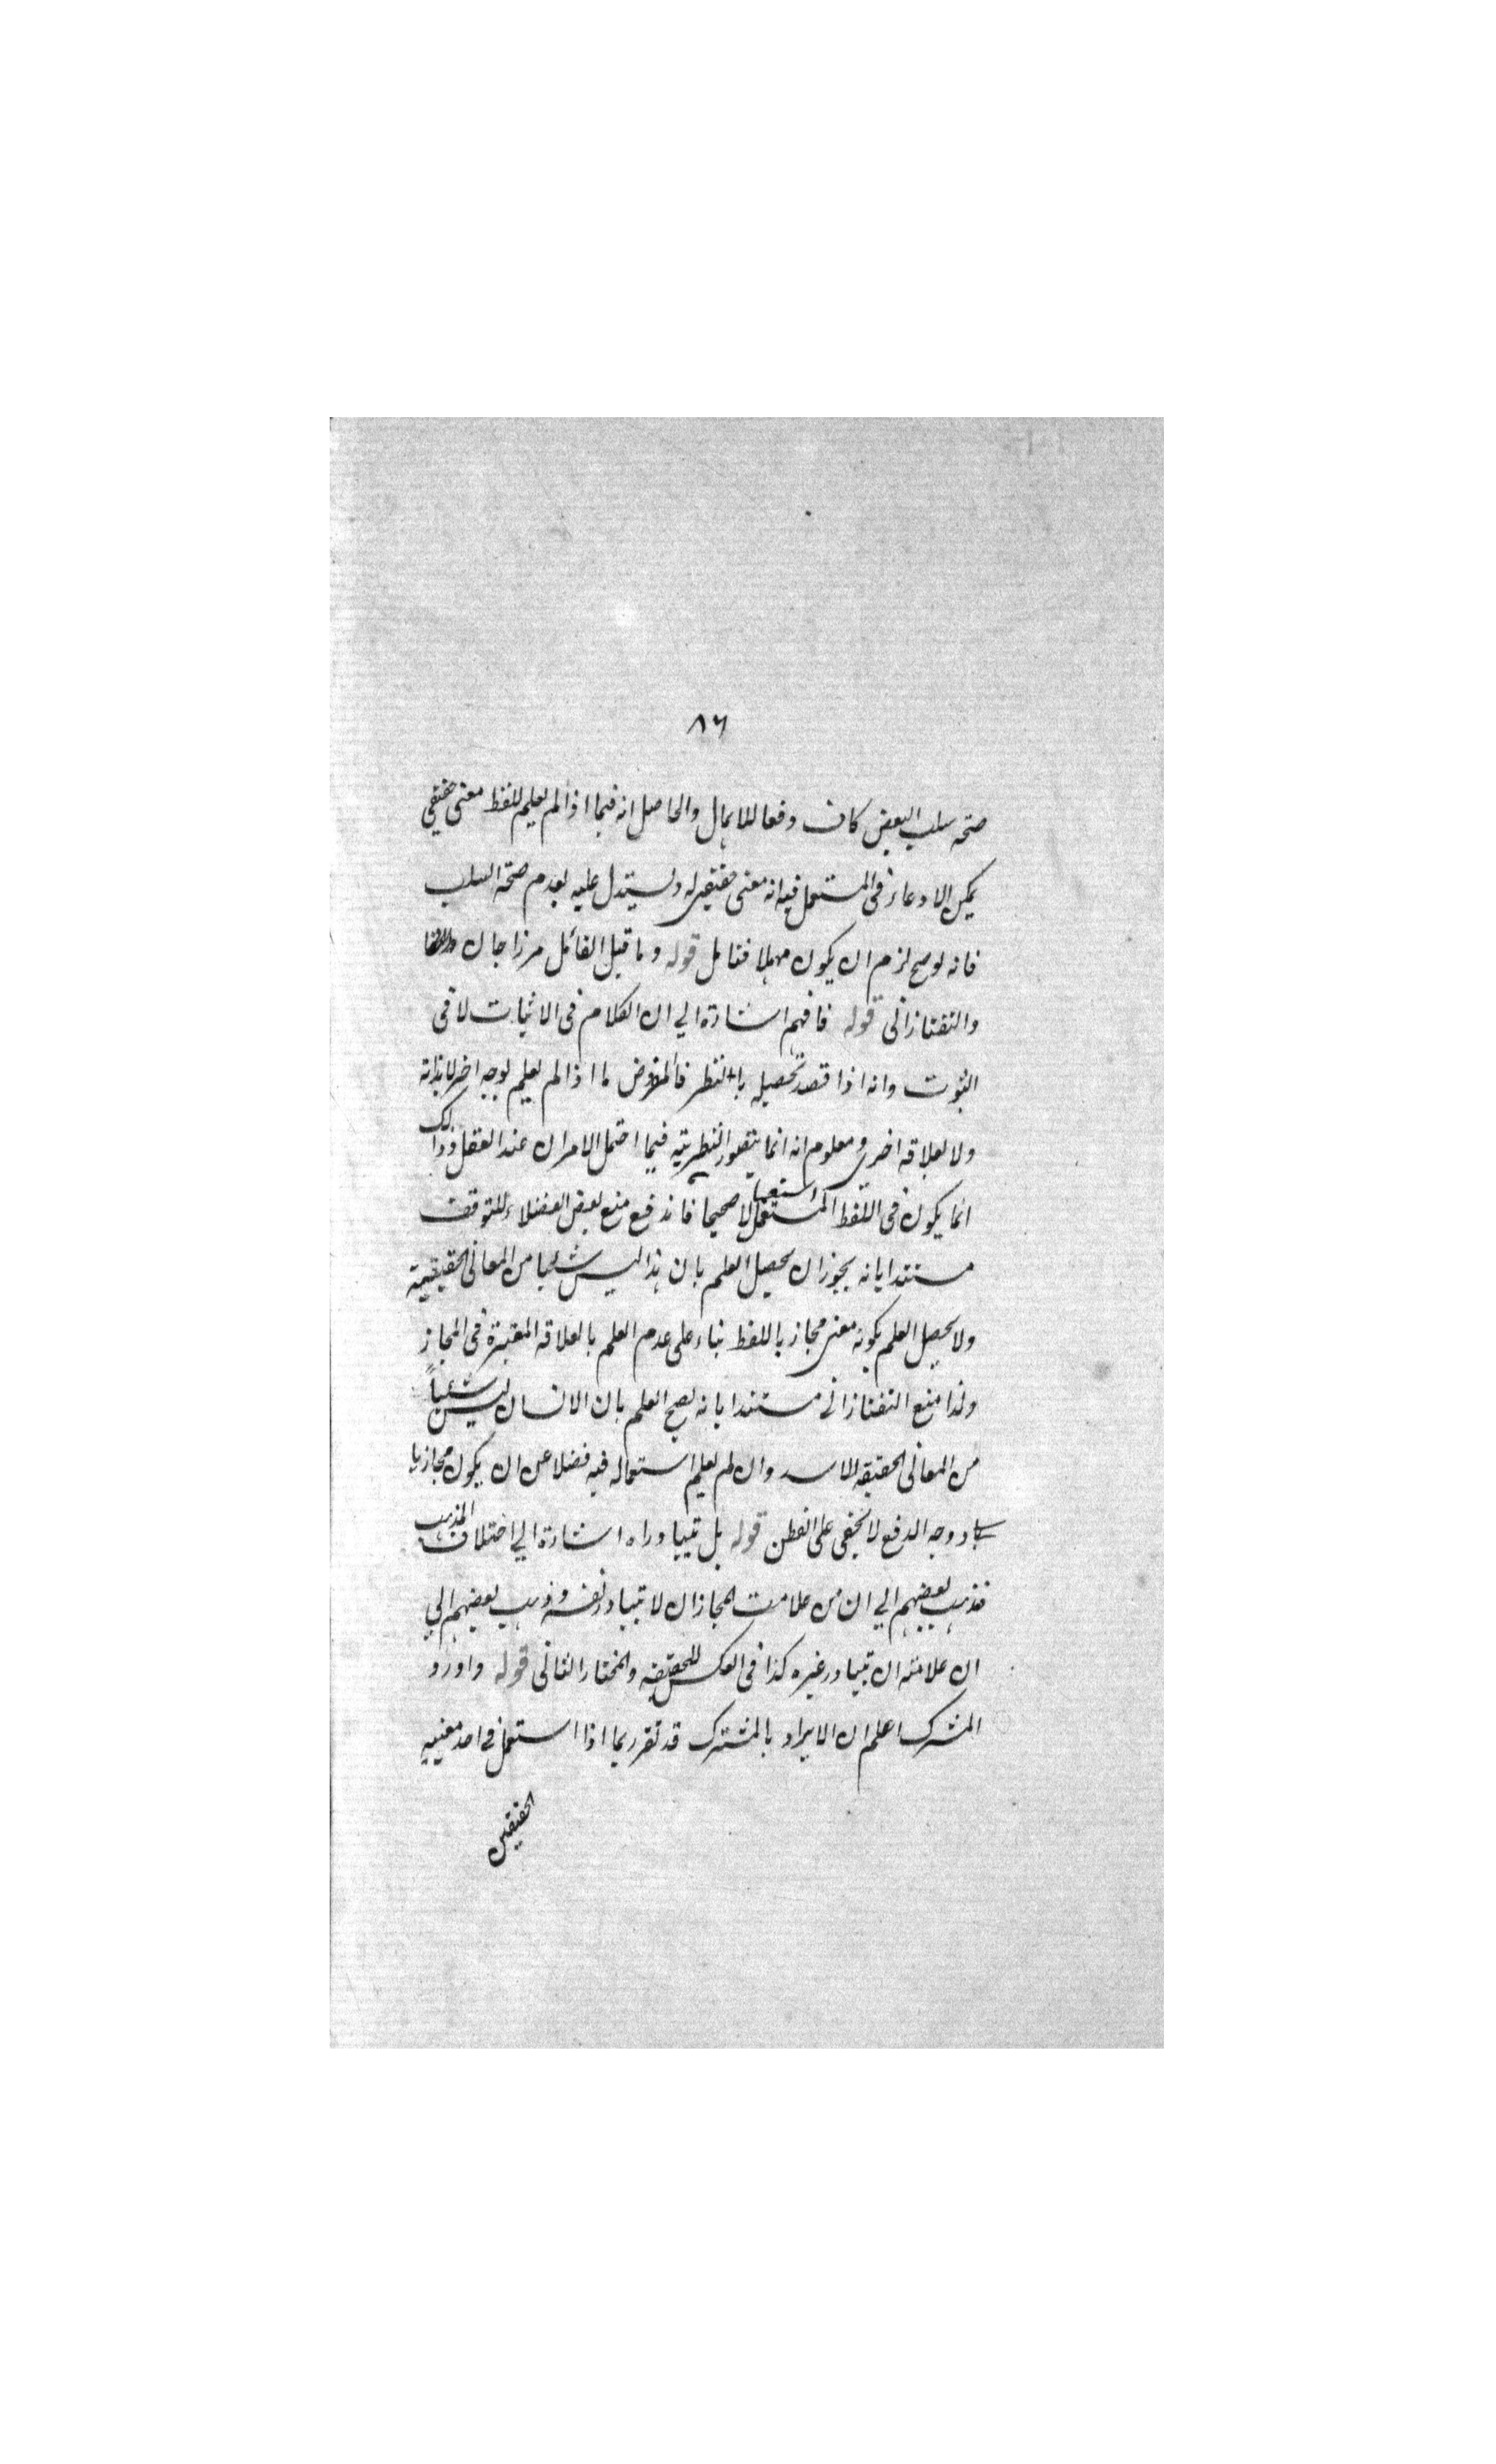 ٨٦
صحة سلب البعض كان دفعا للاهمال والحاصل انه فيما اذا لم يعلم للفظ معنى حقيقي
يمكن الادعاء في المستعمل فيه انه معنى حقيقي له ويستدل عليه بعدم صحة السلب
فانه لو صح لزم ان يكون مهملا فتامل قوله وما قيل القائل مرزا جان
والتفتازاني قوله فافهم اشارة الي ان الكلام في الاثبات لا في
الثبوت وانه اذا قصد تحصيله بالنظر فالمفروض ما اذا لم يعلم بوجه اخر لا بذاته
ولا بعلاقة اخرى ومعلوم انه انما يتصور النظرية فيما احتمل الامران عند العقل وذالك
انما يكون في اللفظ المستعمل استعمالا صحيحا فاندفع منع بعض الفضلاء للتوقف
مستندا بانه يجوز ان يحصل العلم بان هذا ليس شيئا من المعاني الحقيقية
ولا يحصل العلم بكونه معنى مجازيا للفظ بناء على عدم العلم بالعلاقة المعتبرة في المجاز
ولذا منع التفتازاني مستندا بانه يصح العلم بان الانسان ليس شيئاً
من المعاني الحقيقة للاسد وان لم يعلم استعماله فيه فضلا عن ان يكون مجازيا
ووجه الدفع لا يخفى على الفطن قوله بل تبادر اه اشارة الي اختلاف المذهب
فذهب بعضهم الي ان من علامت المجاز ان لا تبادر نفسه وذهب بعضهم الي
ان علامته ان تبادر غيره كذا في العكس للحقيقة والمختار الثاني قوله واورد
المشترك اعلم ان الايراد بالمشترك قد تقرر بما اذا استعمل في احد معنييه
الحقيقيين